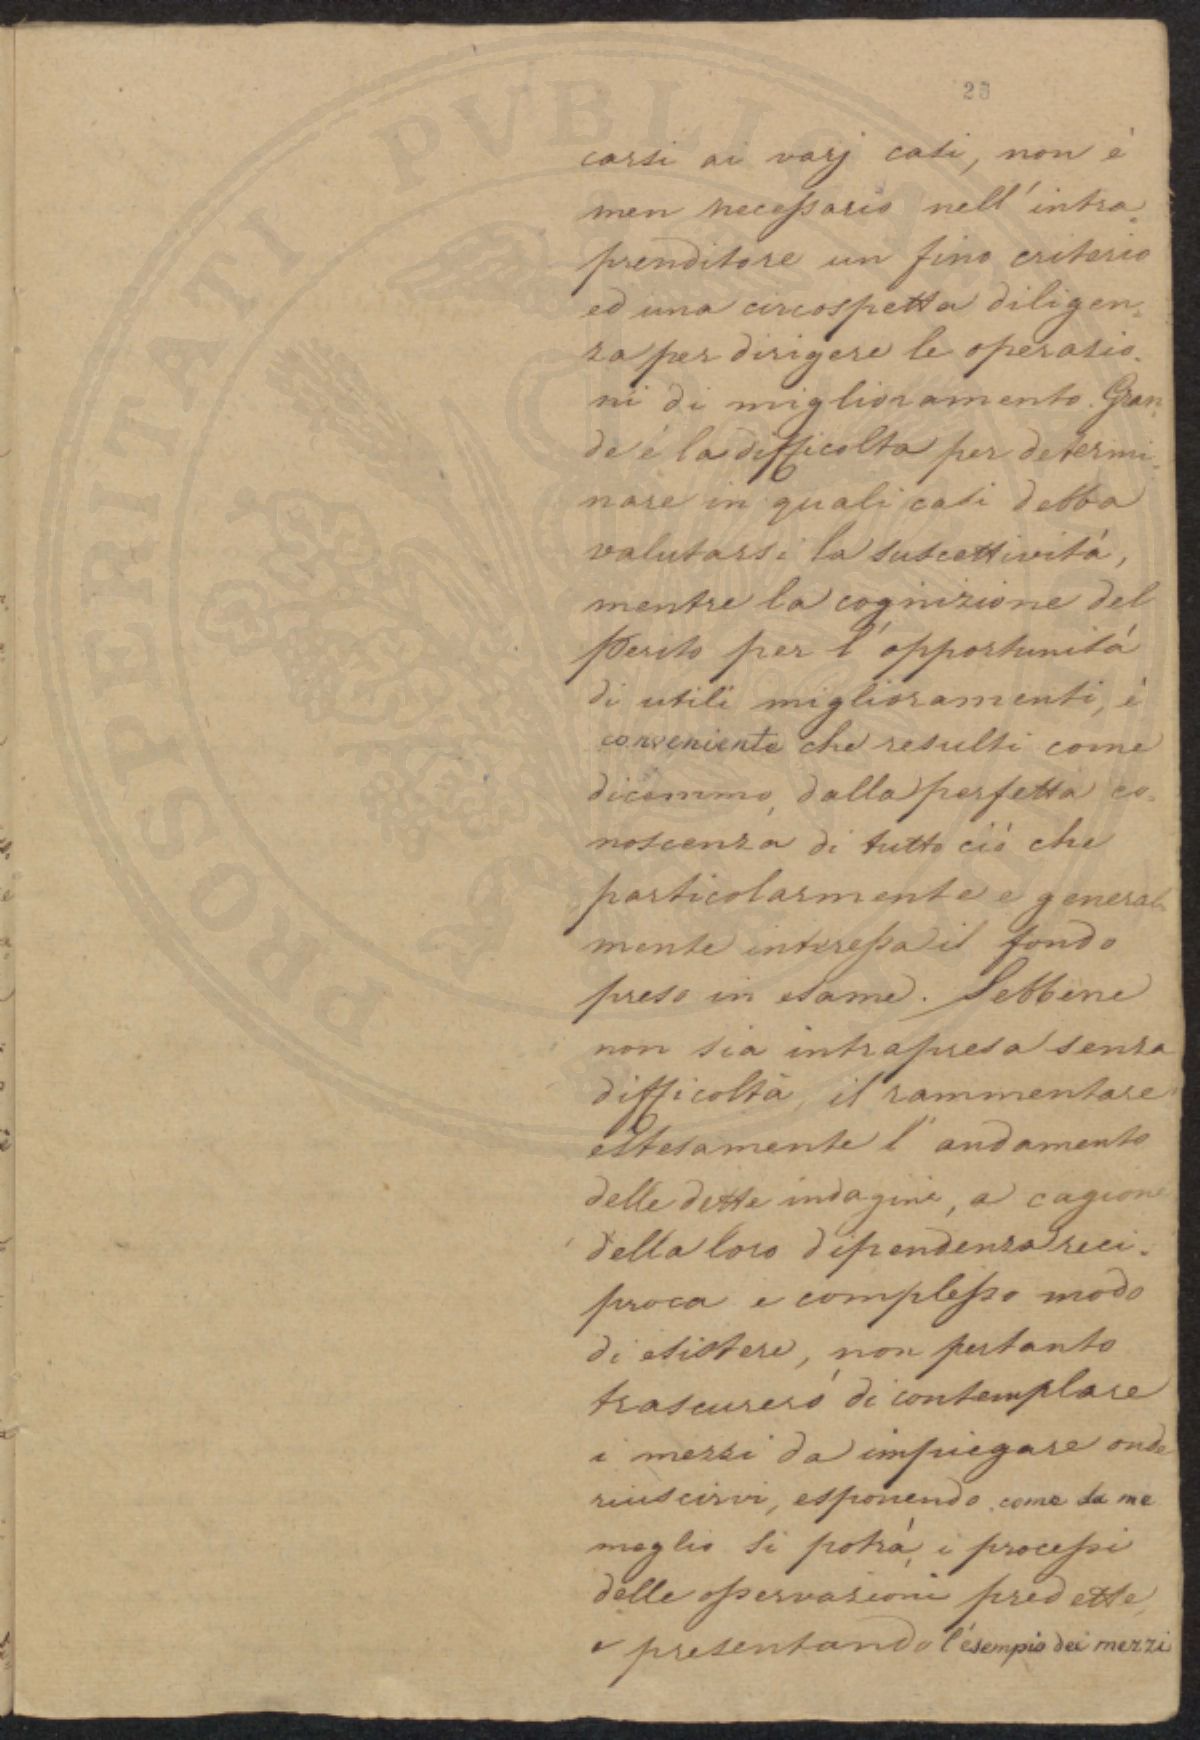 25
carsi ai varj casi, non é
men necessario nell'intra=
prenditore un fino criterio
ed una circospetta diligen=
za per dirigere le operazio=
ni di miglioramento. Gran=
de é la difficolta per determi=
nare in quali casi debba
valutarsi la suscettivitá,
mentre la cognizione del
Perito per l'opportunitá
di utili miglioramenti, é
conveniente che resulti come
dicemmo, dalla perfetta co=
noscenza di tutto ció che
particolarmente e general=
mente interessa il fondo
preso in esame. Sebbene
non sia intrapresa senza
difficoltà, il rammentare
estesamente l'andamento
delle dette indagini, a cagione
della loro dipendenza reci=
proca e complesso modo
di esistere, non pertanto
trascureró di contemplare
i mezzi da impiegare onde
riuscirvi, esponendo come da me
meglio si potrá, i processi
delle osservazioni predette,
e presentando l'esempio dei mezzi
PROSPERITATI PVBLICAE